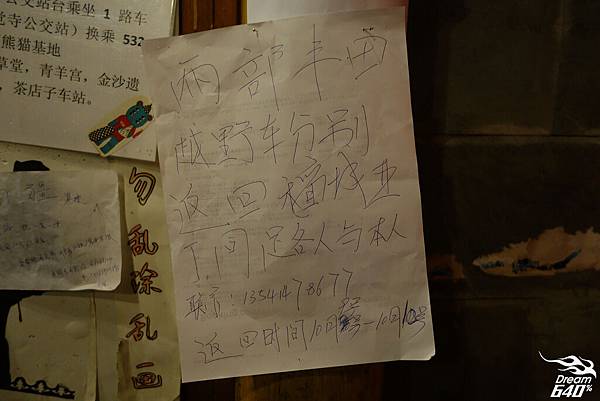 公交站台乘坐 1 路车
觉寺公交站）换乘 532
熊猫基地
草堂，青羊宫，金沙遗
，茶店子车站。
两部丰田
越野车分别
返回稻城亚
丁，间足各人与本人
联系：13541478677
返回时间10月 号—10月10号
勿乱涂乱画
Dream
640%